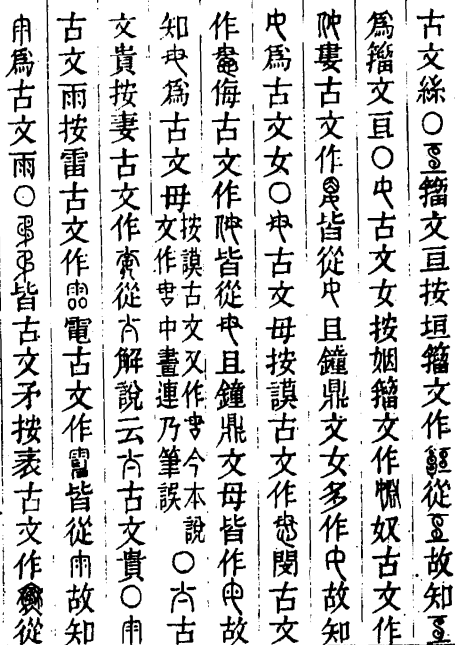 古文絲〇籀文亘按垣籀文作從故知
爲籀文亘〇古文女按姻籀文作奴古文作
婁古文作皆從且鐘鼎文女多作故知
爲古文女〇古文母按謨古文作閔古文
作侮古文作皆從且鐘鼎文母皆作故
知爲古文毋按謨古文又作今本說文作中畫連乃筆誤〇古
文貴按妻古文作從解說云古文貴〇
古文雨按雷古文作電古文作皆從故知
爲古文雨〇皆古文矛按袤古文作從